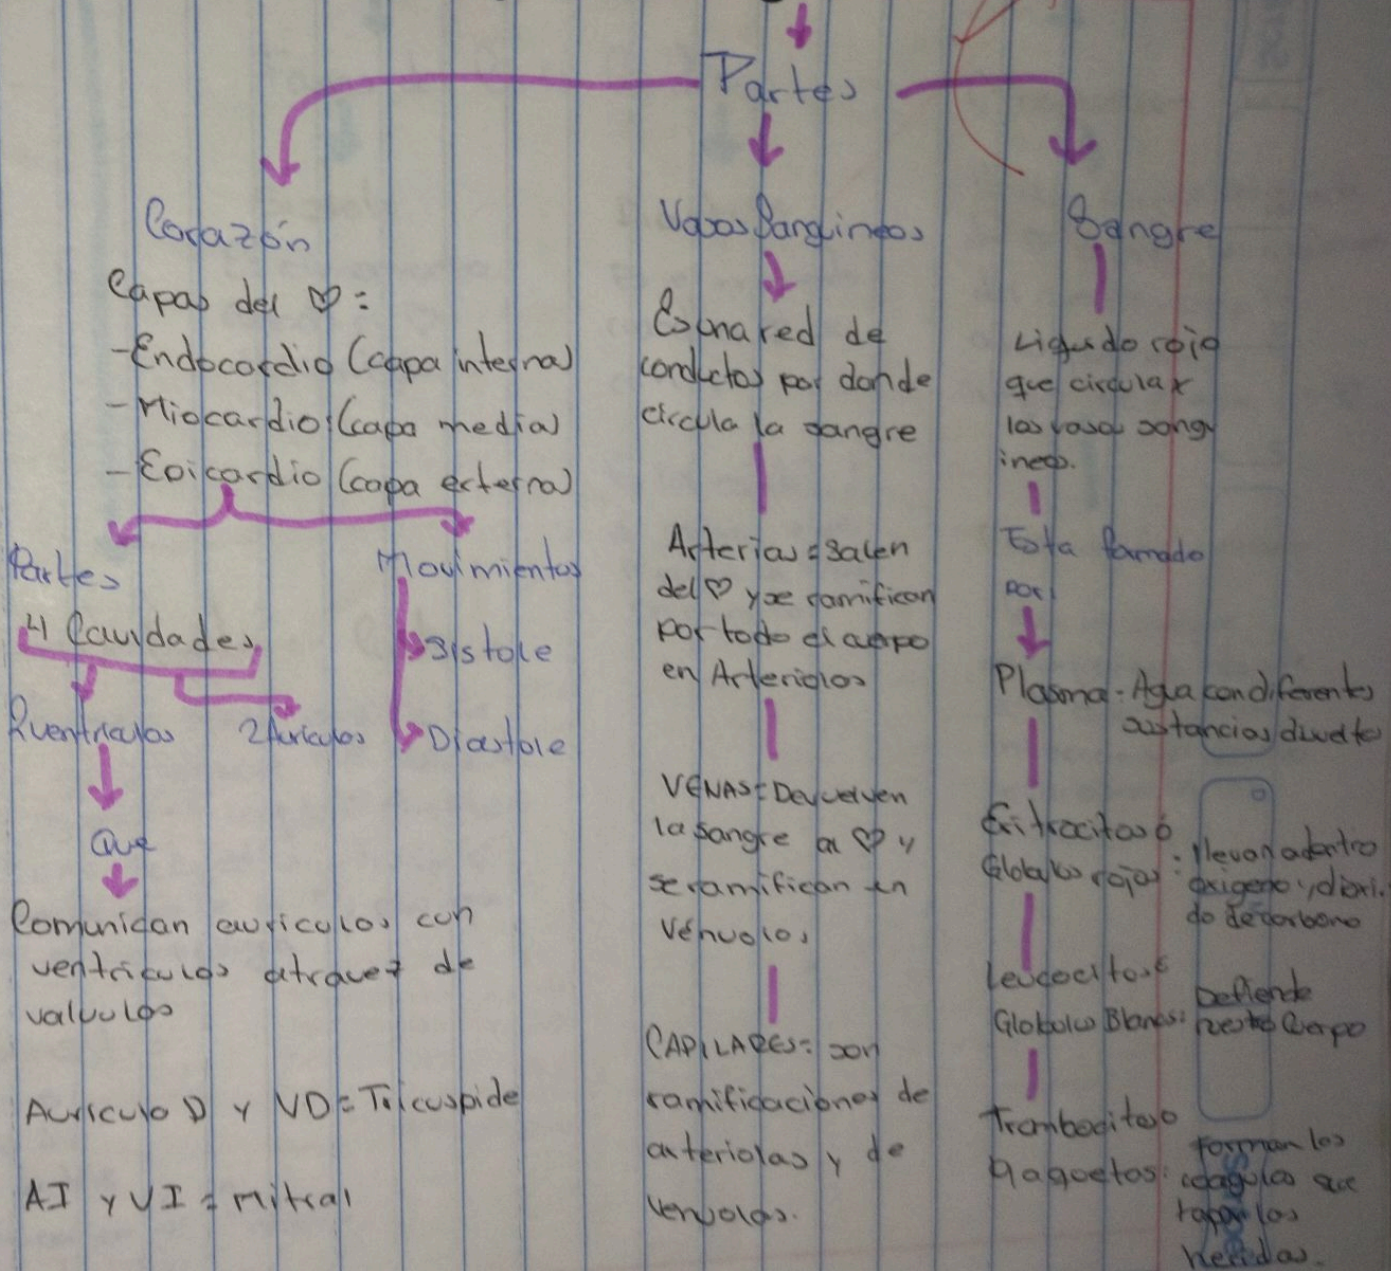 Partes
Corazón
Capas del ♡:
-Endocardio (capa interna)
-Miocardio (capa media)
-Epicardio (capa externa)
Partes
4 Cavidades
2 ventriculos
2 Auriculas
Que
Comunican auriculos con
ventriculos atravez de
valvulos
Auriculo D y VD = Tricuspide
AI y VI = Mitral
Movimientos
Sistole
Diastole
Vasos Sanguineos
Es una red de
conductos por donde
circula la sangre
Arterias = Salen
del ♡ y se ramifican
por todo el cuerpo
en Arteriolos
VENAS = Devuelven
la sangre al ♡ y
se ramifican en
vénulos
CAPILARES = son
ramificaciones de
arteriolas y de
venulas.
Sangre
Liquido rojo
que circula x
los vasos sang
ineos.
Esta formado
por
Plasma: Agua con diferentes
sustancias
Eritrocitos ó
Globulos rojos: llevan adentro
oxigeno y dioxi.
do de carbono
Leucocitos ó
Globulos Blancos: Defiende
nuestro Cuerpo
Trombocitos o
Plaquetas: forman los
coagulos que
tapan los
heridas.